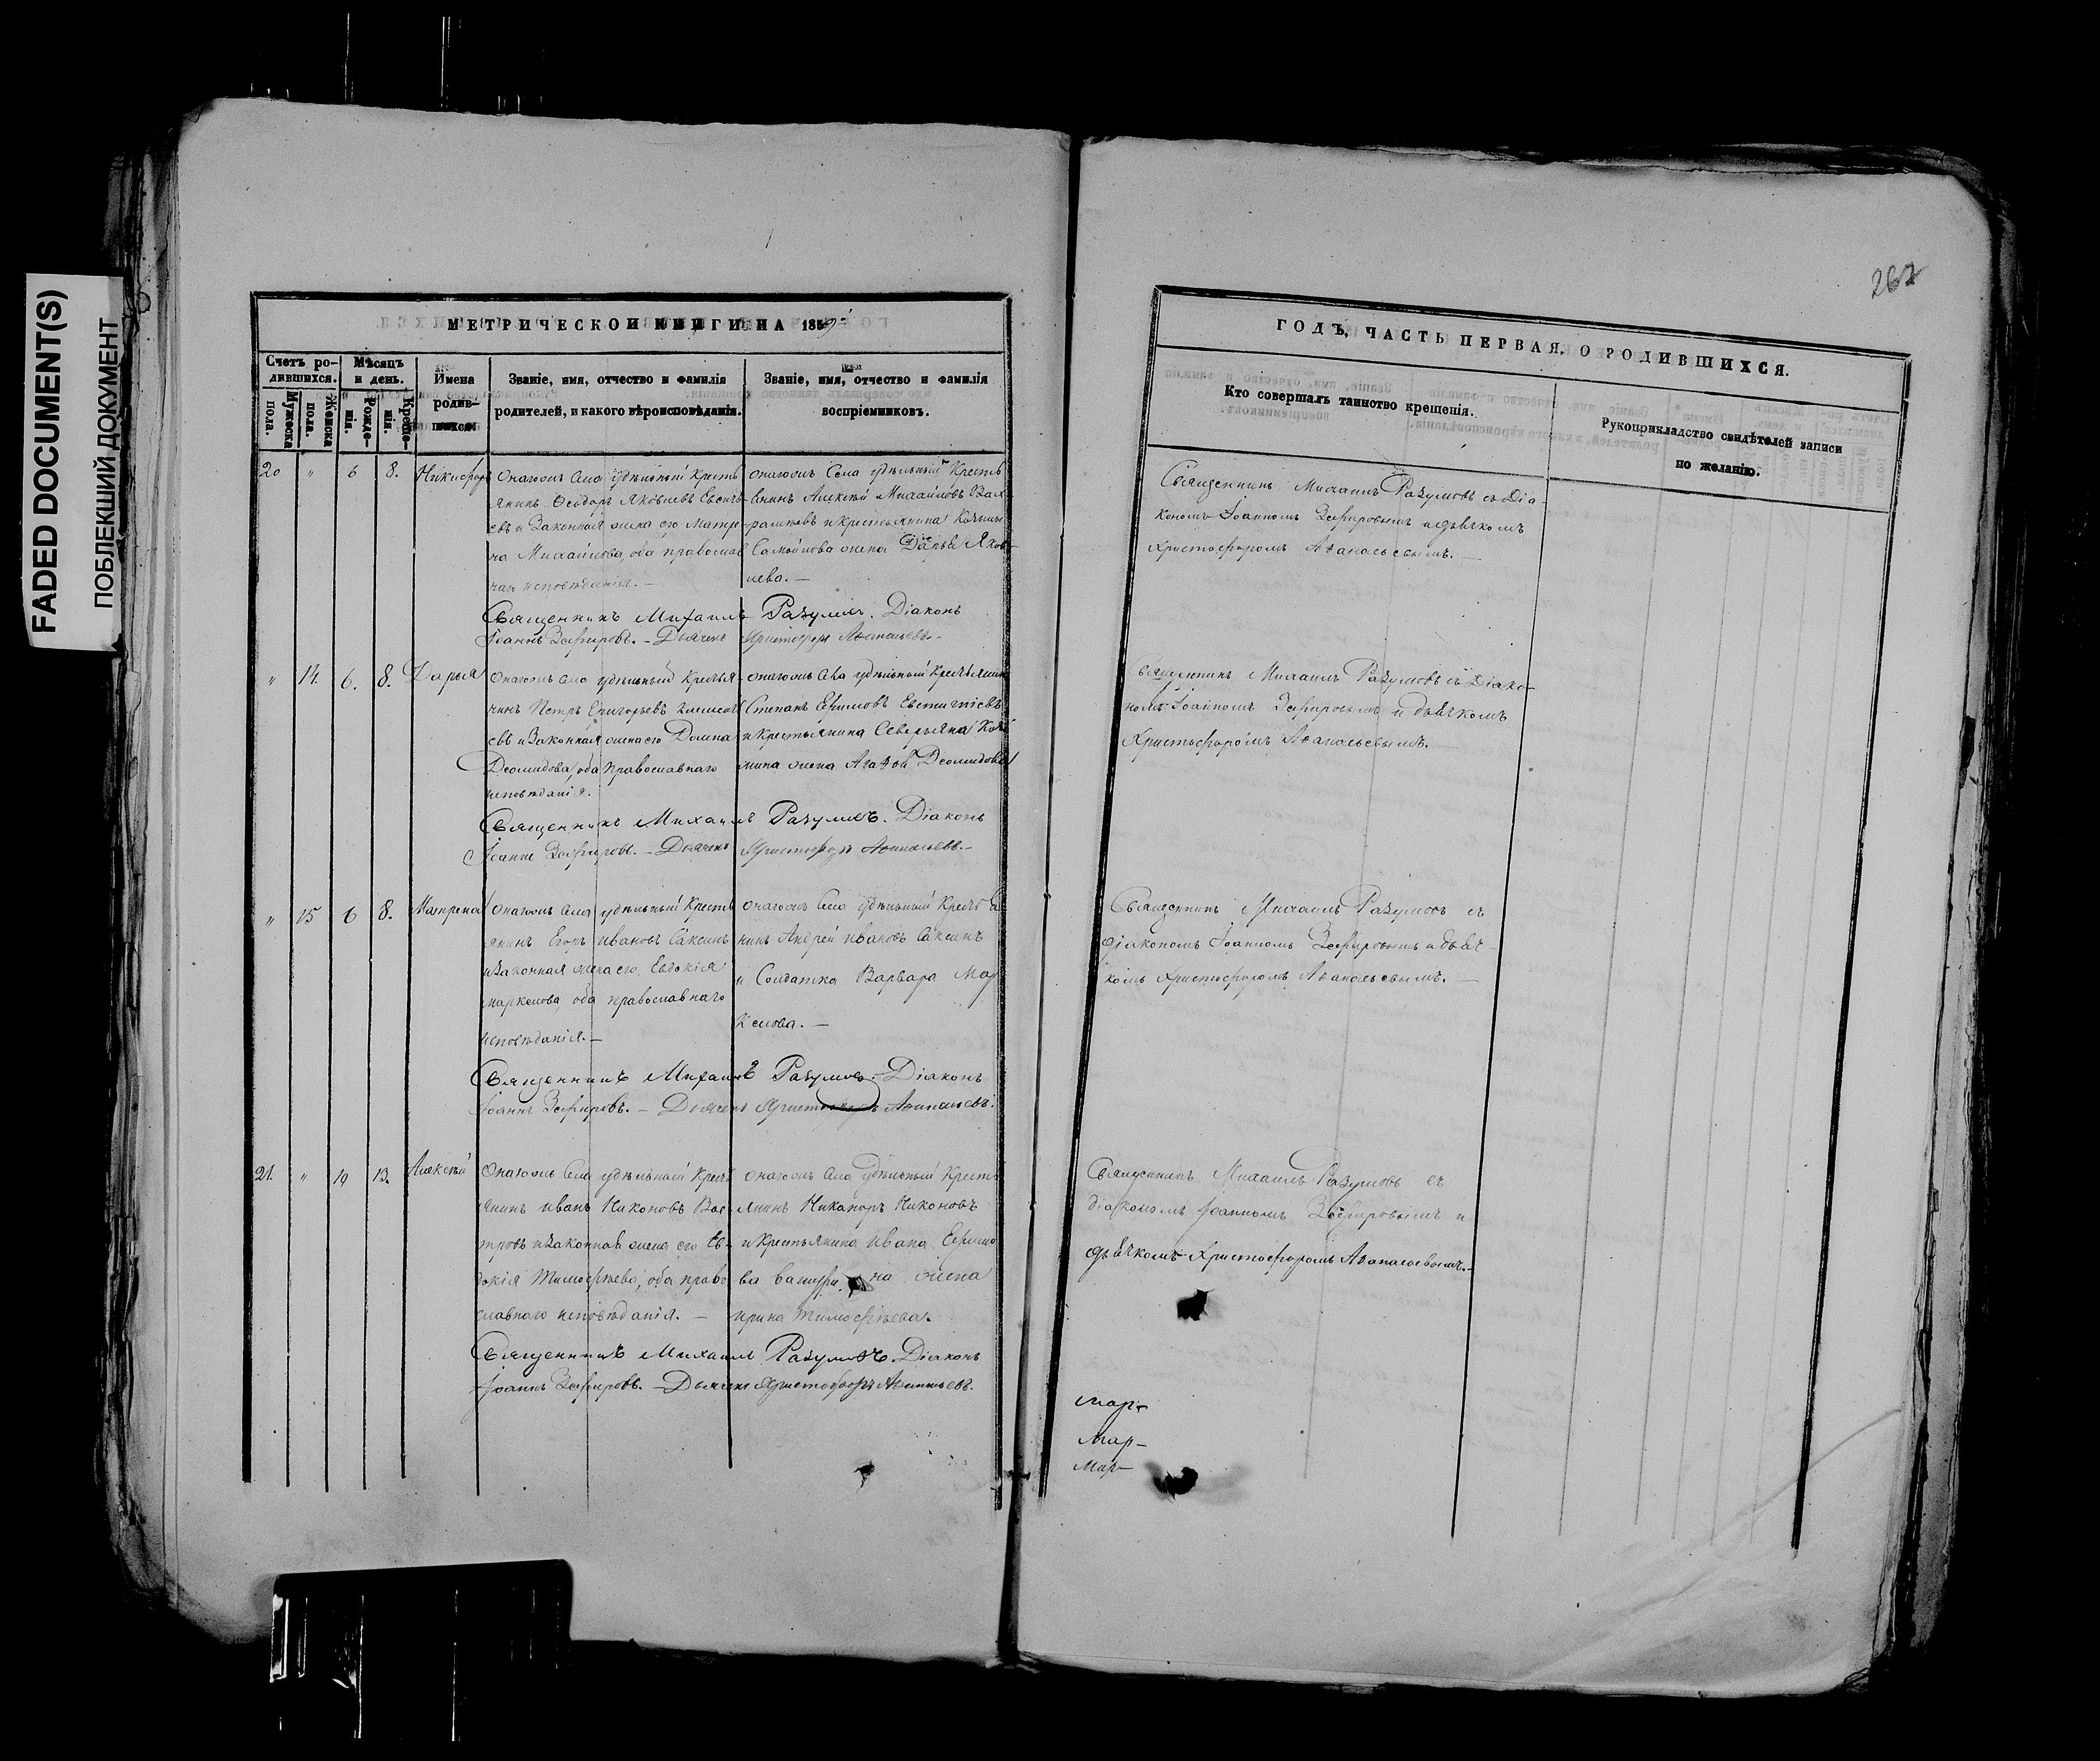 FADED DOCUMENT(S)
ПОБЛЕКШИЙ ДОКУМЕНТ
МЕТРИЧЕСКОЙ КНИГИ НА 1859
Счетъ ро-
дившихся.
Мужеска
пола.
Женска
пола.
Мѣсяцъ
и день.
Рожде-
нія.
Креще-
нія.
Имена
родив-
шихся
Званіе, имя, отчество и фамилія
родителей, и какого вѣроисповѣданія.
Званіе, имя, отчество и фамилія
воспріемниковъ.
20 " 6 8. Никифоръ
Онагожъ Села удѣльный Кресть
янинъ Ѳеодоръ Яковлевъ Евсигн
евъ и Законная жена его Матре
на Михайлова, оба православ
наго исповѣданія. —
онагожъ Села удѣльный Кресть
янинъ Алексѣй Михайловъ
и Крестьянина
Самойлова жена Дарья Яков-
лева. —
Священникъ Михаилъ Разумовъ. Діаконъ
Іоаннъ Зефировъ. — Дьячекъ Христофоръ Аѳанасьевъ. —
" 14. 6. 8. Дарья
Онагожъ Села удѣльный Крестья-
нинъ Петръ Григорьевъ
евъ и Законная жена его Домна
Деомидова, оба православнаго
исповѣданія.
онагожъ Села удѣльный Крестьянинъ
Степанъ Ефимовъ Евстигнѣевъ
и Крестьянина Северьяна
жена Агаѳья Деомидова
Священникъ Михаилъ Разумовъ. Діаконъ
Іоаннъ Зефировъ. — Дьячекъ Христофоръ Аѳанасьевъ. —
" 15 6 8. Матрена
Онагожъ Села удѣльный Кресть
янинъ Егоръ Ивановъ Саксинъ
и Законная жена его Евдокія
Маркелова, оба православнаго
исповѣданія. —
онагожъ Села удѣльный Крестья
нинъ Андрей Ивановъ Саксинъ
и Солдатка Варвара Мар
келова. —
Священникъ Михаилъ Разумовъ. Діаконъ
Іоаннъ Зефировъ. — Дьячекъ Христофоръ Аѳанасьевъ.
21. " 10 13. Алексѣй
Онагожъ Села удѣльный Кресть
янинъ Иванъ Никоновъ
и Законная жена его Ев-
докія Тимофѣева, оба право
славнаго исповѣданія. —
онагожъ Села удѣльный Кресть
янинъ Никаноръ Никоновъ
и Крестьянина Ивана Ефимо
ва жена
Ирина Тимофѣева.
Священникъ Михаилъ Разумовъ. Діаконъ
Іоаннъ Зефировъ. — Дьячекъ Христофоръ Аѳанасьевъ.
262
ГОДЪ, ЧАСТЬ ПЕРВАЯ, О РОДИВШИХСЯ.
Кто совершалъ таинство крещенія.
Рукоприкладство свидѣтелей записи
по желанію.
Священникъ Михаилъ Разумовъ съ Діа-
кономъ Іоанномъ Зефировымъ и дьячкомъ
Христофоромъ Аѳанасьевымъ. —
Священникъ Михаилъ Разумовъ съ Діако-
номъ Іоанномъ Зефировымъ и дьячкомъ
Христофоромъ Аѳанасьевымъ. —
Священникъ Михаилъ Разумовъ съ
діакономъ Іоанномъ Зефировымъ и дьяч-
комъ Христофоромъ Аѳанасьевымъ. —
Священникъ Михаилъ Разумовъ съ
діакономъ Іоанномъ Зефировымъ и
дьячкомъ Христофоромъ Аѳанасьевымъ. —
Мар-
Мар-
Мар-